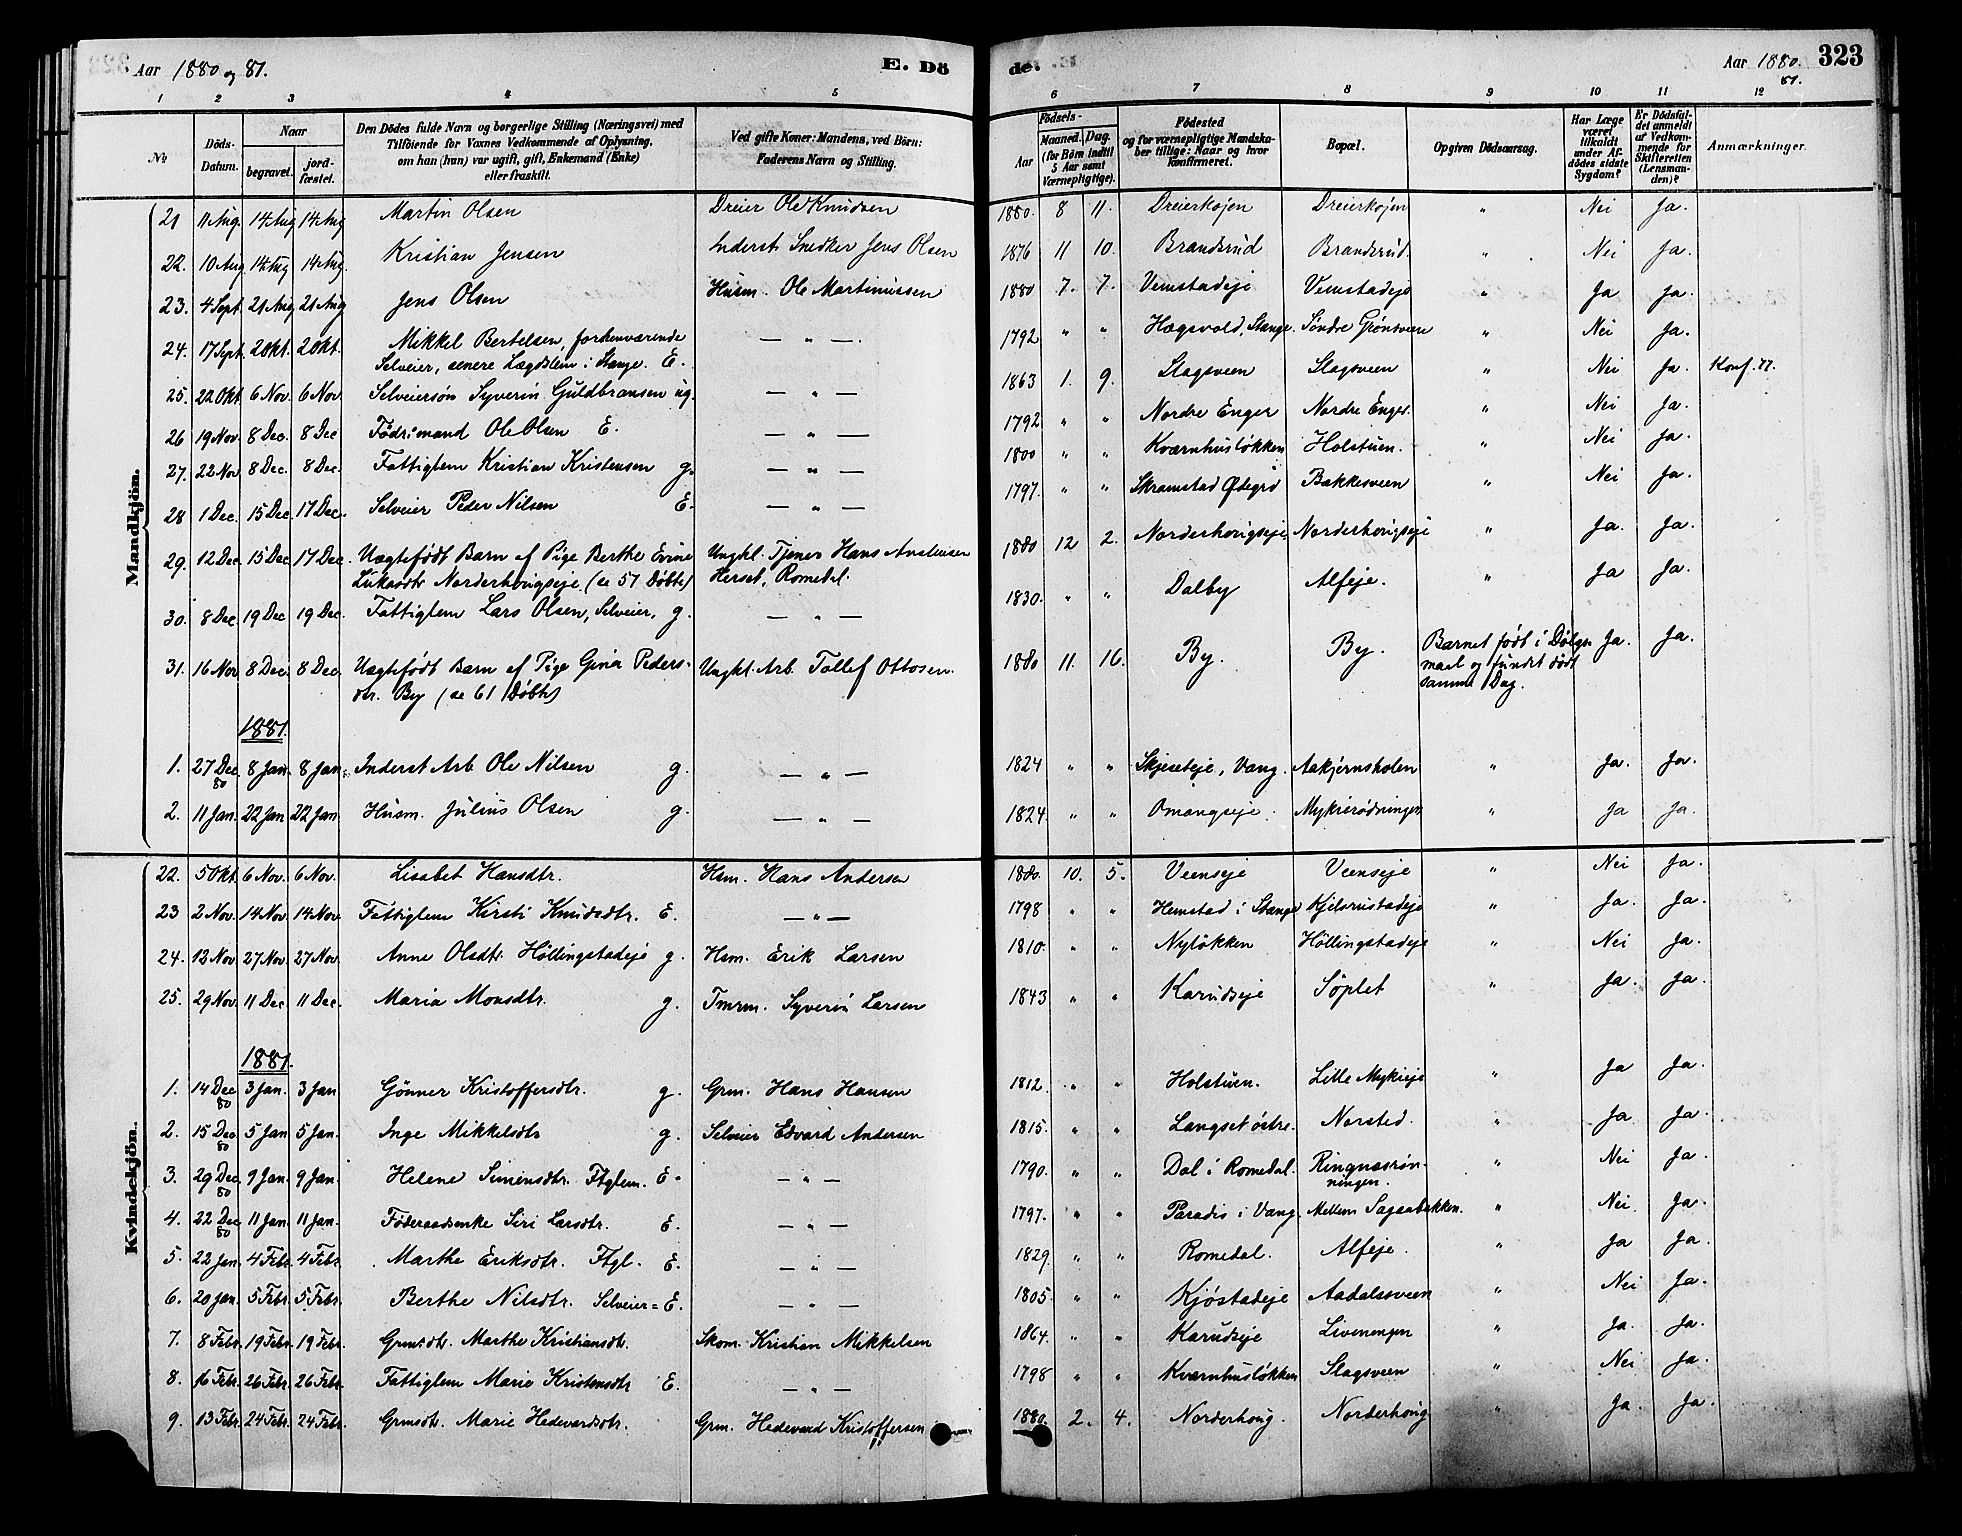 Aar 1880 og 81.
E. Dö
de.
Aar 1880. 81.
323
1 2 3 4 5 6 7 8 9 10 11 12
No
Döds-Datum.
Naar
begravet.
jordfæstet.
Den Dödes fulde Navn og borgerlige Stilling (Næringsvei) med
Tilföiende for Voxnes Vedkommende af Oplysning,
om han (hun) var ugift, gift, Enkemand (Enke)
eller fraskilt.
Ved gifte Koner: Mandens, ved Börn:
Faderens Navn og Stilling.
Födsels-
Aar
Maaned. Dag.
(for Börn indtil 5 Aar samt Værnepligtige).
Födested
og for værnepligtige Mandskaber tillige: Naar og hvor konfirmeret.
Bopæl.
Opgiven Dödsaarsag.
Har Læge været tilkaldt under Afdödes sidste Sygdom?
Er Dödsfaldet anmeldt af Vedkommende for Skifteretten (Lensmanden)?
Anmærkninger.
Mandkjön.
21 11 Aug 14 Aug 14 Aug Martin Olsen Dreier Ole Knudsen 1880. 8 11. Dreierkojen Dreierkojen " Nei Ja.
22. 10 Aug 14 Aug 14 Aug. Kristian Jensen Inderst. Snedker Jens Olsen 1876 11 10. Brandsrud Brandsrud. " Nei Ja.
23. 4 Sept. 21 Aug 21 Aug Jens Olsen Husm. Ole Martinussen 1880 7. 7. Vemstadeje Vemstadeje " Ja Ja.
24. 17 Sept. 2 Okt. 2 Okt. Mikkel Bertelsen, forhenværende
Selveier, senere Lægdslem i Stange. E. — " — 1792 " " Hægsvold, Stange. Søndre Grønsveen " Nei Ja.
25. 22 Okt. 6 Nov. 6 Nov. Selveiersøn Syverin Guldbransen ug. — " — 1863 1. 9. Slagsveen Slagsveen " Nei Ja. Konf. 77.
26 19 Nov. 8 Dec. 8 Dec Födrimand Ole Olsen E. — " — 1792 " " Nordre Enger Nordre Enger. " Nei Ja.
27. 22 Nov 8 Dec. 8 Dec. Fattiglem Kristian Kristensen g. — " — 1800 " " Kværnhusløkken Holstuen. " Nei Ja.
28 1 Dec. 15 Dec. 17 Dec. Selveier Peder Nilsen E. — " — 1797. " " Skramstad Ødegrd Bakkesveen " Nei Ja.
29. 12 Dec. 15 Dec. 17 Dec. Uægtefødt Barn af Pige Berthe Evine
Lukasdtr Norderhovigseje (se 57 Døbte) Ungkl. Tjener Hans
Herset, Romedal. 1880 12 2. Norderhovigseje Norderhovigseje " Ja. Ja.
30. 8 Dec. 19 Dec 19 Dec. Fattiglem Lars Olsen, Selveier, g. — " — 1830. " " Dalby Alfeje. " Ja Ja.
31. 16 Nov 8 Dec. 8 Dec. Uægtefødt Barn af Pige Gina Peders-
dtr. By (se 61 Døbte) Ungkl. Arb. Tollef Ottosen. 1880 11. 16. By. By. Barnet født i Dølgs-
maal og fundet dødt
samme Dag. Ja. Ja.
1881.
1. 27 Dec. 80 8 Jan. 8 Jan. Inderst Arb. Ole Nilsen g. — " — 1824 " " Skjeseteje, Vang. Aakjernsholen " Ja. Ja.
2. 11 Jan. 22 Jan 22 Jan. Husm. Julius Olsen g. — " — 1824. " " Omangseje. Mykrerødningen " Ja Ja.
Kvindekjön.
22. 5 Okt. 6 Nov. 6 Nov. Lisabet Hansdtr. Hsm. Hans Andersen 1880. 10. 5. Veenseje Veenseje " Nei Ja.
23 2 Nov. 14 Nov. 14 Nov. Fattiglem Kirsti Knudsdtr. E. — " — 1798 " " Hemstad i Stange Kjelsrustadeje " Ja. Ja.
24. 12 Nov 27 Nov. 27 Nov. Anne Olsdtr. Höllingstadeje g. Hsm. Erik Larsen 1810. " " Nyløkken Höllingstadeje " Nei Ja.
25. 29 Nov. 11 Dec 11 Dec. Maria Monsdtr. g. Tmrm. Syverin Larsen 1843 " " Karudseje Söplet " Ja. Ja.
1881.
1. 14 Dec 80 3 Jan. 3 Jan Gönner Kristoffersdtr. g. Grm. Hans Hansen 1812. " " Holstuen. Lille Mykseje " Ja Ja.
2. 15 Dec. 80 5 Jan 5 Jan. Inge Mikkelsdtr g. Selveier Edvard Andersen 1815. " " Langset østre. Norsted. " Ja Ja.
3. 29 Dec. 80 9 Jan. 9 Jan. Helene Simensdtr. Ftglem. E. — " — 1790. " " Dal i Romedal. Ringnæsrøn-
ningen. " Nei Ja.
4. 22 Dec 80 11 Jan. 11 Jan. Föderaadsenke Siri Larsdtr. E. — " — 1797. " " Paradis i Vang. Mellem Sagaabakken. " Nei. Ja.
5. 22 Jan. 4 Febr. 4 Febr. Marthe Eriksdtr. Ftgl. E. — " — 1829 " " Romedal. Alfeje. " Ja Ja.
6. 20 Jan. 5 Febr. 5 Febr. Berthe Nilsdtr. Selveier= E. — " — 1805. " " Kjöstadeje Aadalssveen " Nei Ja.
7. 8 Febr. 19 Febr. 19 Febr. Grmsdtr. Marthe Kristiansdtr. Skom. Kristian Mikkelsen 1864. " " Karudseje Livenengen " Ja. Ja.
8. 16 Febr. 26 Febr. 26 Febr. Fattiglem Marie Kristensdtr E. — " — 1798 " " Kværnhusløkken Slagsveen " Nei Ja.
9. 13 Febr. 24 Febr. 24 Febr. Grmsdtr. Marie Hedevardsdtr. Grm. Hedevard Kristoffersen 1880. 2. 4. Norderhovig. Norderhovig " Ja. Ja.